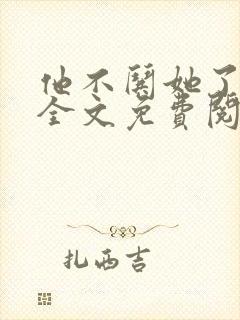 他不闻她了
全文免费阅
扎西吉